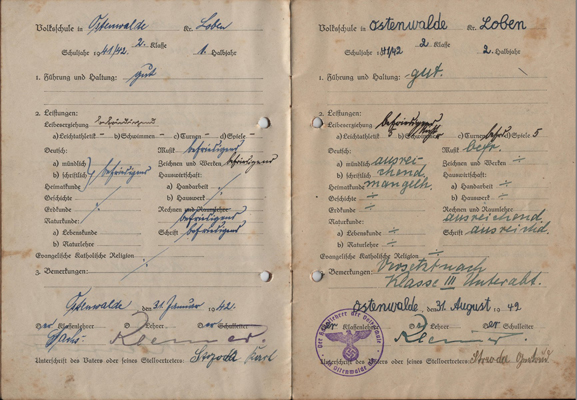 Volksschule in Ostenwalde Kr. Loben
Schuljahr 1941/42 2. Klasse 1. Halbjahr
1. Führung und Haltung: gut
2. Leistungen:
Leibeserziehung befriedigend
a) Leichtathletik – b) Schwimmen – c) Turnen – d) Spiele –
Deutsch: Musik befriedigend
a) mündlich Zeichnen und Werken befriedigend
b) schriftlich befriedigend Hauswirtschaft:
Heimatkunde a) Handarbeit
Geschichte b) Hauswerk
Erdkunde Rechnen und Raumlehre befriedigend
Naturkunde: Schrift befriedigend
a) Lebenskunde
b) Naturlehre
Evangelische Katholische Religion
3. Bemerkungen:
Ostenwalde, den 31. Januar 1942.
Der Klassenlehrer Lehrer Der Schulleiter
Unterschrift des Vaters oder seines Stellvertreters:
Volksschule in Ostenwalde Kr. Loben
Schuljahr 1941/42 2. Klasse 2. Halbjahr
1. Führung und Haltung: gut.
2. Leistungen:
Leibeserziehung befriedigend
a) Leichtathletik 5 b) Schwimmen c) Turnen d) Spiele 5
Deutsch: Musik befr.
a) mündlich ausrei- Zeichnen und Werken ÷
b) schriftlich chend Hauswirtschaft:
Heimatkunde mangelh. a) Handarbeit ÷
Geschichte ÷ b) Hauswerk ÷
Erdkunde ÷ Rechnen und Raumlehre ausreichend
Naturkunde: Schrift ausreichd.
a) Lebenskunde ÷
b) Naturlehre ÷
Evangelische Katholische Religion ÷
3. Bemerkungen: Versetzt nach
Klasse III Unterabt.
Ostenwalde, den 31. August 1942
Der Klassenlehrer Lehrer Der Schulleiter
Unterschrift des Vaters oder seines Stellvertreters: